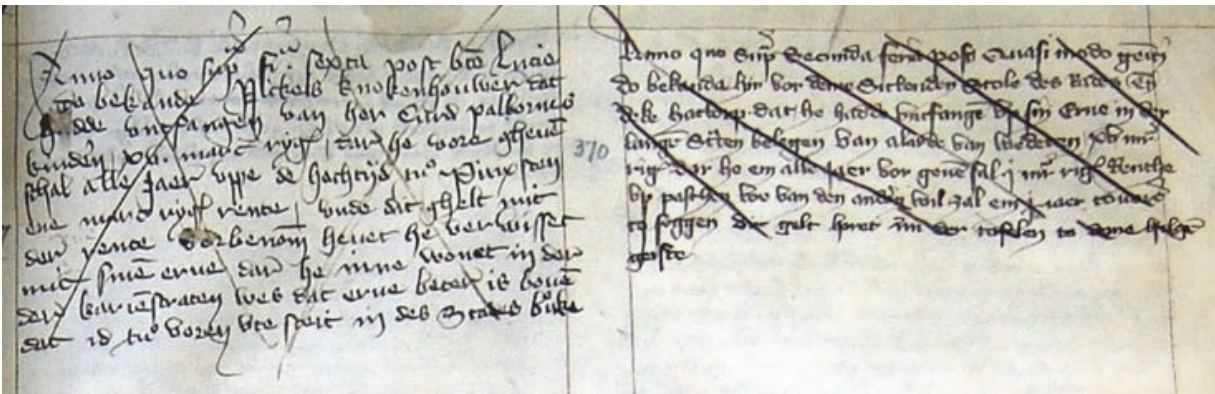 Anno quo sup feria sexta post bto lucie
do bekande Nickels knokenhouwer dat
he dde untfangen van her Euerd palborns
kinderen xv marc ryg dar he wore gheuen
schal alle jaer vppe de hochtijd to Pinxsten
ene marc ryg rente vnde dit ghelt mit
der rente vorbenom heuet he verwisset
mit sime erue dar he inne wonet in der
der kariestraten wes dat erue beter is bouen
dat id tuo voren vte steit in des Stades buke
370
Anno quo sup Secunda feria post Quasi modo geniti
do bekande hir vor deme Sittenden Stole des Rades
deke hactorp dat he hadde vntfangen vp sin Erue in der
langen Straten belegen van alarde van wedeten xv mr
rig dar he em alle jaer vor geuen sal j mr rig Renthe
vp paschen wor van den andern wil zal em j jaer touoren
to seggen dit gelt horet in der tofelen to deme hilgen
geste